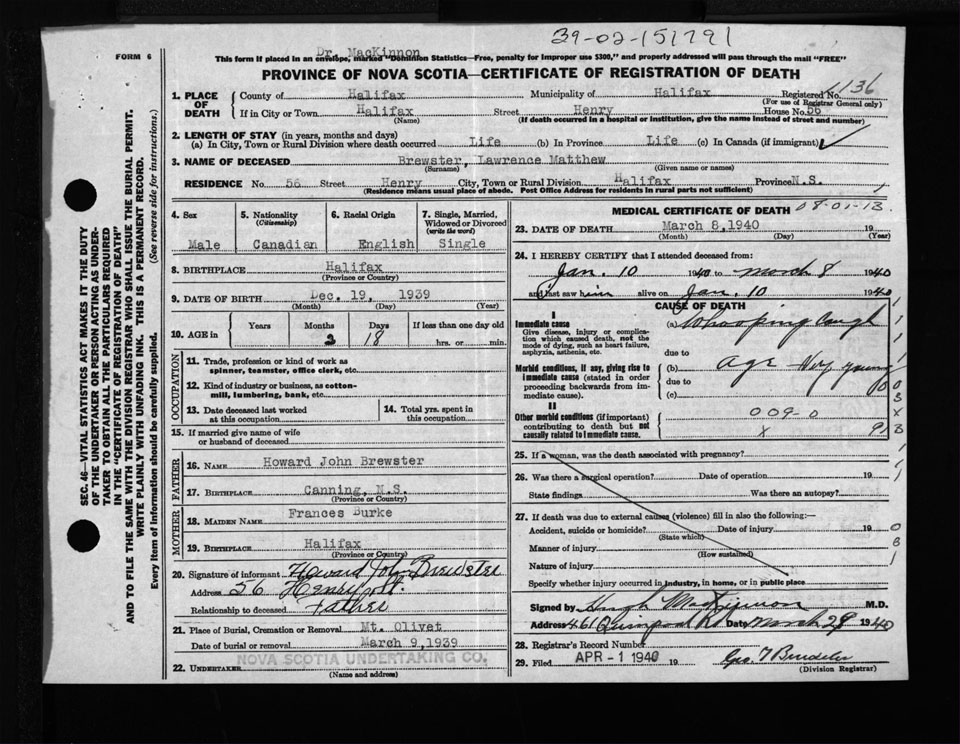 39-02-151791
FORM 6
Dr. MacKinnon
This form if placed in an envelope, marked "Dominion Statistics—Free, penalty for improper use $300," and properly addressed will pass through the mail "FREE"
PROVINCE OF NOVA SCOTIA—CERTIFICATE OF REGISTRATION OF DEATH
1. PLACE OF DEATH
County of Halifax Municipality of Halifax Registered No. 136
(For use of Registrar General only)
If in City or Town Halifax Street Henry House No. 56
(Name) (If death occurred in a hospital or institution, give the name instead of street and number)
2. LENGTH OF STAY (in years, months and days)
(a) In City, Town or Rural Division where death occurred Life (b) In Province Life (c) In Canada (if immigrant) ✓
3. NAME OF DECEASED Brewster, Lawrence Matthew
(Surname) (Given name or names)
RESIDENCE No. 56 Street Henry City, Town or Rural Division Halifax Province N.S.
(Residence means usual place of abode. Post Office Address for residents in rural parts not sufficient)
4. Sex 5. Nationality (Citizenship) 6. Racial Origin 7. Single, Married, Widowed or Divorced (write the word)
Male Canadian English Single
8. BIRTHPLACE Halifax
(Province or Country)
9. DATE OF BIRTH Dec. 19, 1939
(Month) (Day) (Year)
10. AGE in Years Months Days If less than one day old
18 hrs. or min.
OCCUPATION
11. Trade, profession or kind of work as spinner, teamster, office clerk, etc.
12. Kind of industry or business, as cotton-mill, lumbering, bank, etc.
13. Date deceased last worked at this occupation
14. Total yrs. spent in this occupation
15. If married give name of wife or husband of deceased
FATHER
16. Name Howard John Brewster
17. Birthplace Canning, N.S.
(Province or Country)
MOTHER
18. Maiden Name Frances Burke
19. Birthplace Halifax
(Province or Country)
20. Signature of informant Howard John Brewster
Address 56 Henry St.
Relationship to deceased Father
21. Place of Burial, Cremation or Removal Mt. Olivet
Date of burial or removal March 9, 1939
22. Undertaker NOVA SCOTIA UNDERTAKING CO.
(Name and address)
MEDICAL CERTIFICATE OF DEATH 08-01-13
23. DATE OF DEATH March 8, 1940
(Month) (Day) (Year)
24. I HEREBY CERTIFY that I attended deceased from:
Jan. 10 1940 to March 8 1940
and last saw him alive on Jan. 10 1940
CAUSE OF DEATH
I
Immediate cause
Give disease, injury or complication which caused death, not the mode of dying, such as heart failure, asphyxia, asthenia, etc.
(a) Whooping Cough
due to
Morbid conditions, if any, giving rise to immediate cause (stated in order proceeding backwards from immediate cause).
(b) age Very young
due to
(c)
II
Other morbid conditions (if important) contributing to death but not causally related to immediate cause.
009-0
x 9
25. If a woman, was the death associated with pregnancy?
26. Was there a surgical operation? Date of operation 19
State findings Was there an autopsy?
27. If death was due to external causes (violence) fill in also the following:—
Accident, suicide or homicide? Date of injury 19
(State which)
Manner of injury
(How sustained)
Nature of injury
Specify whether injury occurred in industry, in home, or in public place
Signed by Hugh MacKinnon M.D.
Address 461 Quinpool Rd Date March 29 1940
28. Registrar's Record Number
29. Filed APR - 1 1940 19 Geo. T
(Division Registrar)
SEC. 46—VITAL STATISTICS ACT MAKES IT THE DUTY
OF THE UNDERTAKER OR PERSON ACTING AS UNDER-
TAKER TO OBTAIN ALL THE PARTICULARS REQUIRED
IN THE "CERTIFICATE OF REGISTRATION OF DEATH"
AND TO FILE THE SAME WITH THE DIVISION REGISTRAR WHO SHALL ISSUE THE BURIAL PERMIT.
WRITE PLAINLY WITH UNFADING INK. THIS IS A PERMANENT RECORD.
Every item of information should be carefully supplied. (See reverse side for instructions.)